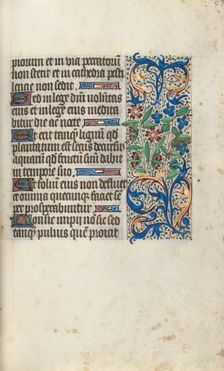 piorum et in via peccatorum
non stetit et in cathedra pesti
lencie non sedit.
Sed in lege dñi voluntas
eius et in lege eius medita
bitur die ac nocte.
Et erit tanq̃ lignũ qđ
plantatum est secus decursus
aquarũ qđ fructũ suũ dabit
in tempore suo.
Et foliũ eius non defluet
et omnia quecunq̃ faciet sẽ
per prosperabuntur.
Non sic impii nõ sic sed
tanq̃ pulvis quẽ proicit